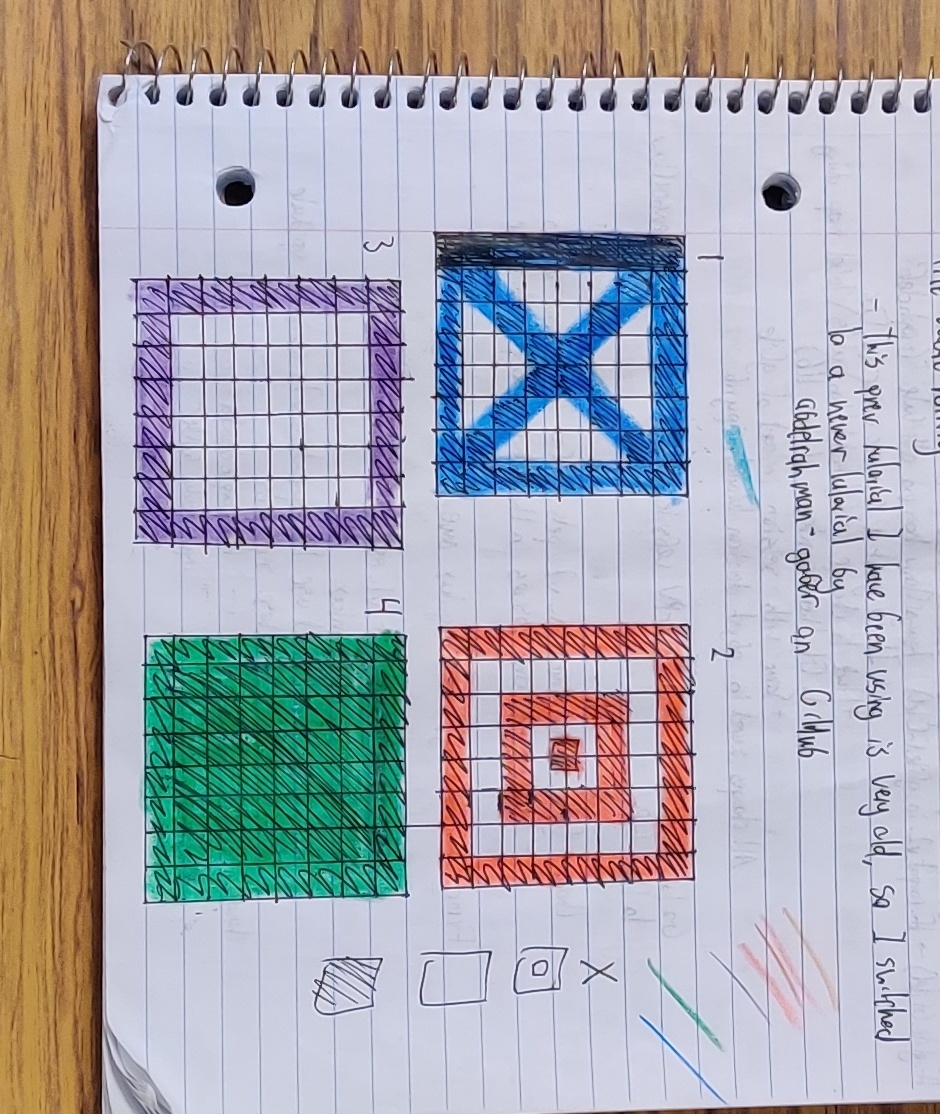 - This prev tutorial I have been using is very old, so I switched
to a newer tutorial by
abdelrahman-gaber on GitHub
1
2
3
4
X